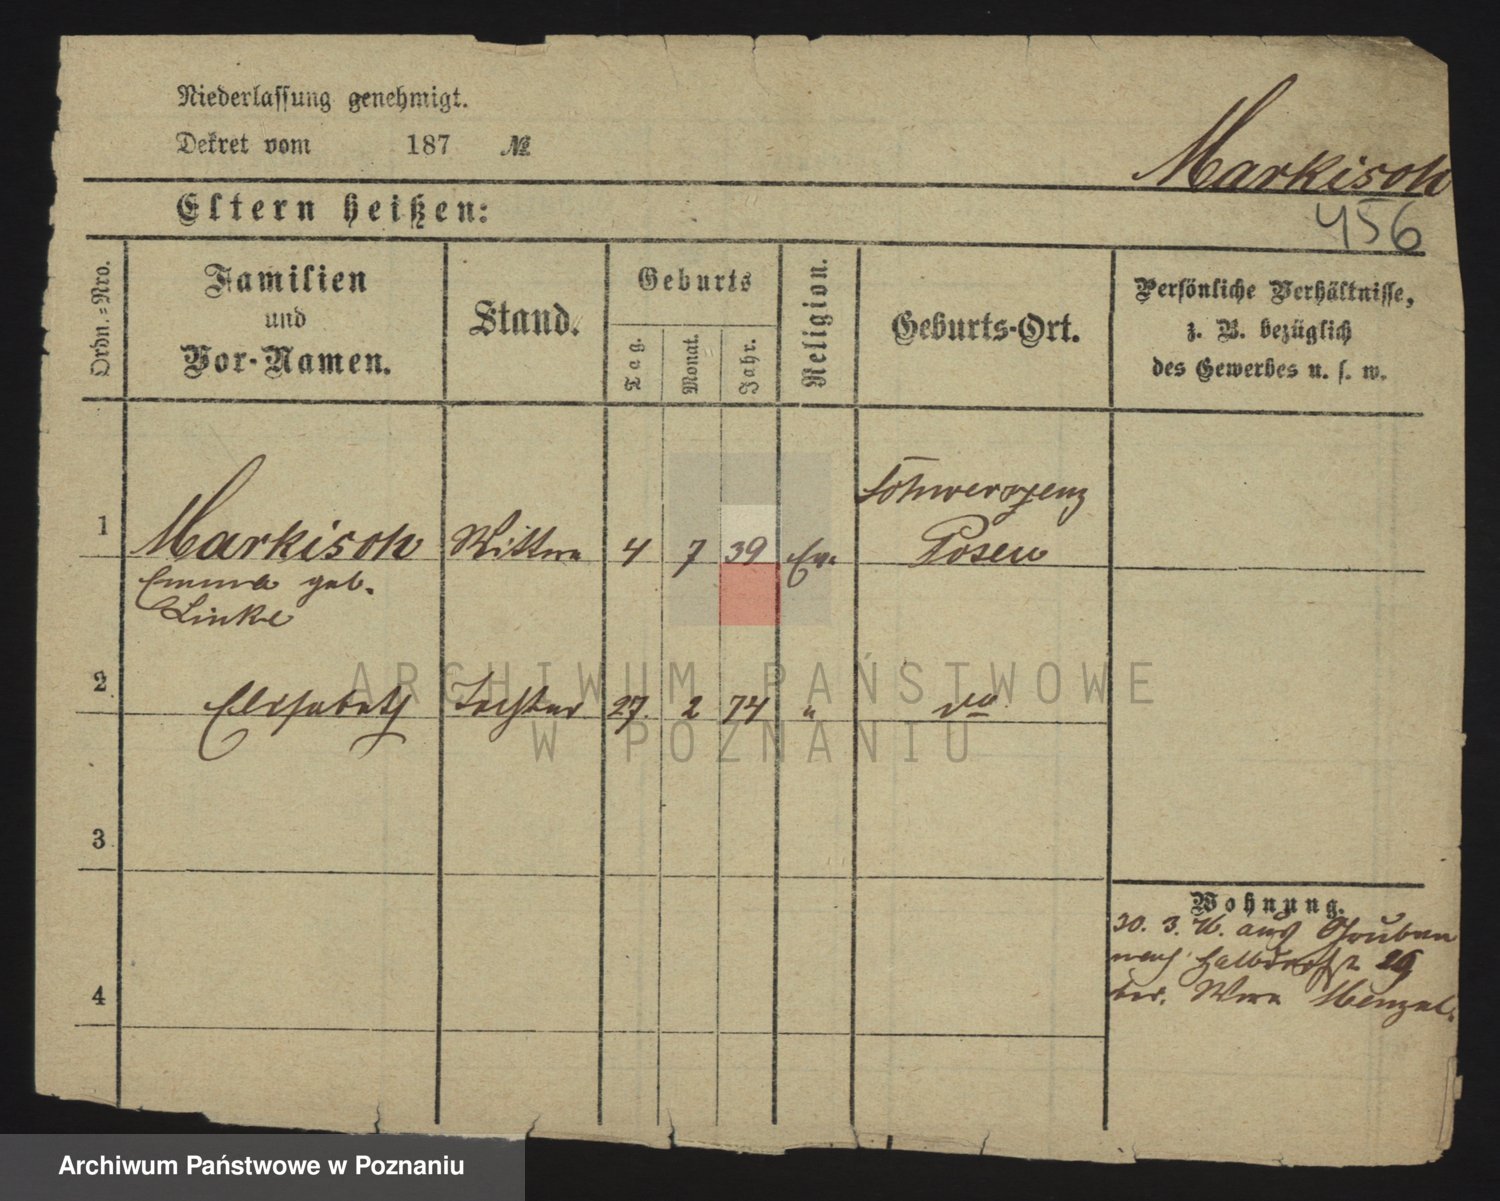 Niederlassung genehmigt.
Dekret vom 187 №
Markisch
456
Eltern heißen:
Ordn.=Nro.
Familien
und
Vor-Namen.
Stand.
Geburts
Tag.
Monat.
Jahr.
Religion.
Geburts-Ort.
Persönliche Verhältnisse,
z. B. bezüglich
des Gewerbes u. s. w.
Schwersenz
1 Markisch Wittwe 4 7 39 Ev. Posen
Emma geb.
Linke
2 Elisabeth Tochter 27. 2 74 " do
3
Wohnung.
30. 3. 76. aus Gruben
nach Halbdorfst 29
bei Wwe Menzel.
4
ARCHIWUM PAŃSTWOWE
W POZNANIU
Archiwum Państwowe w Poznaniu